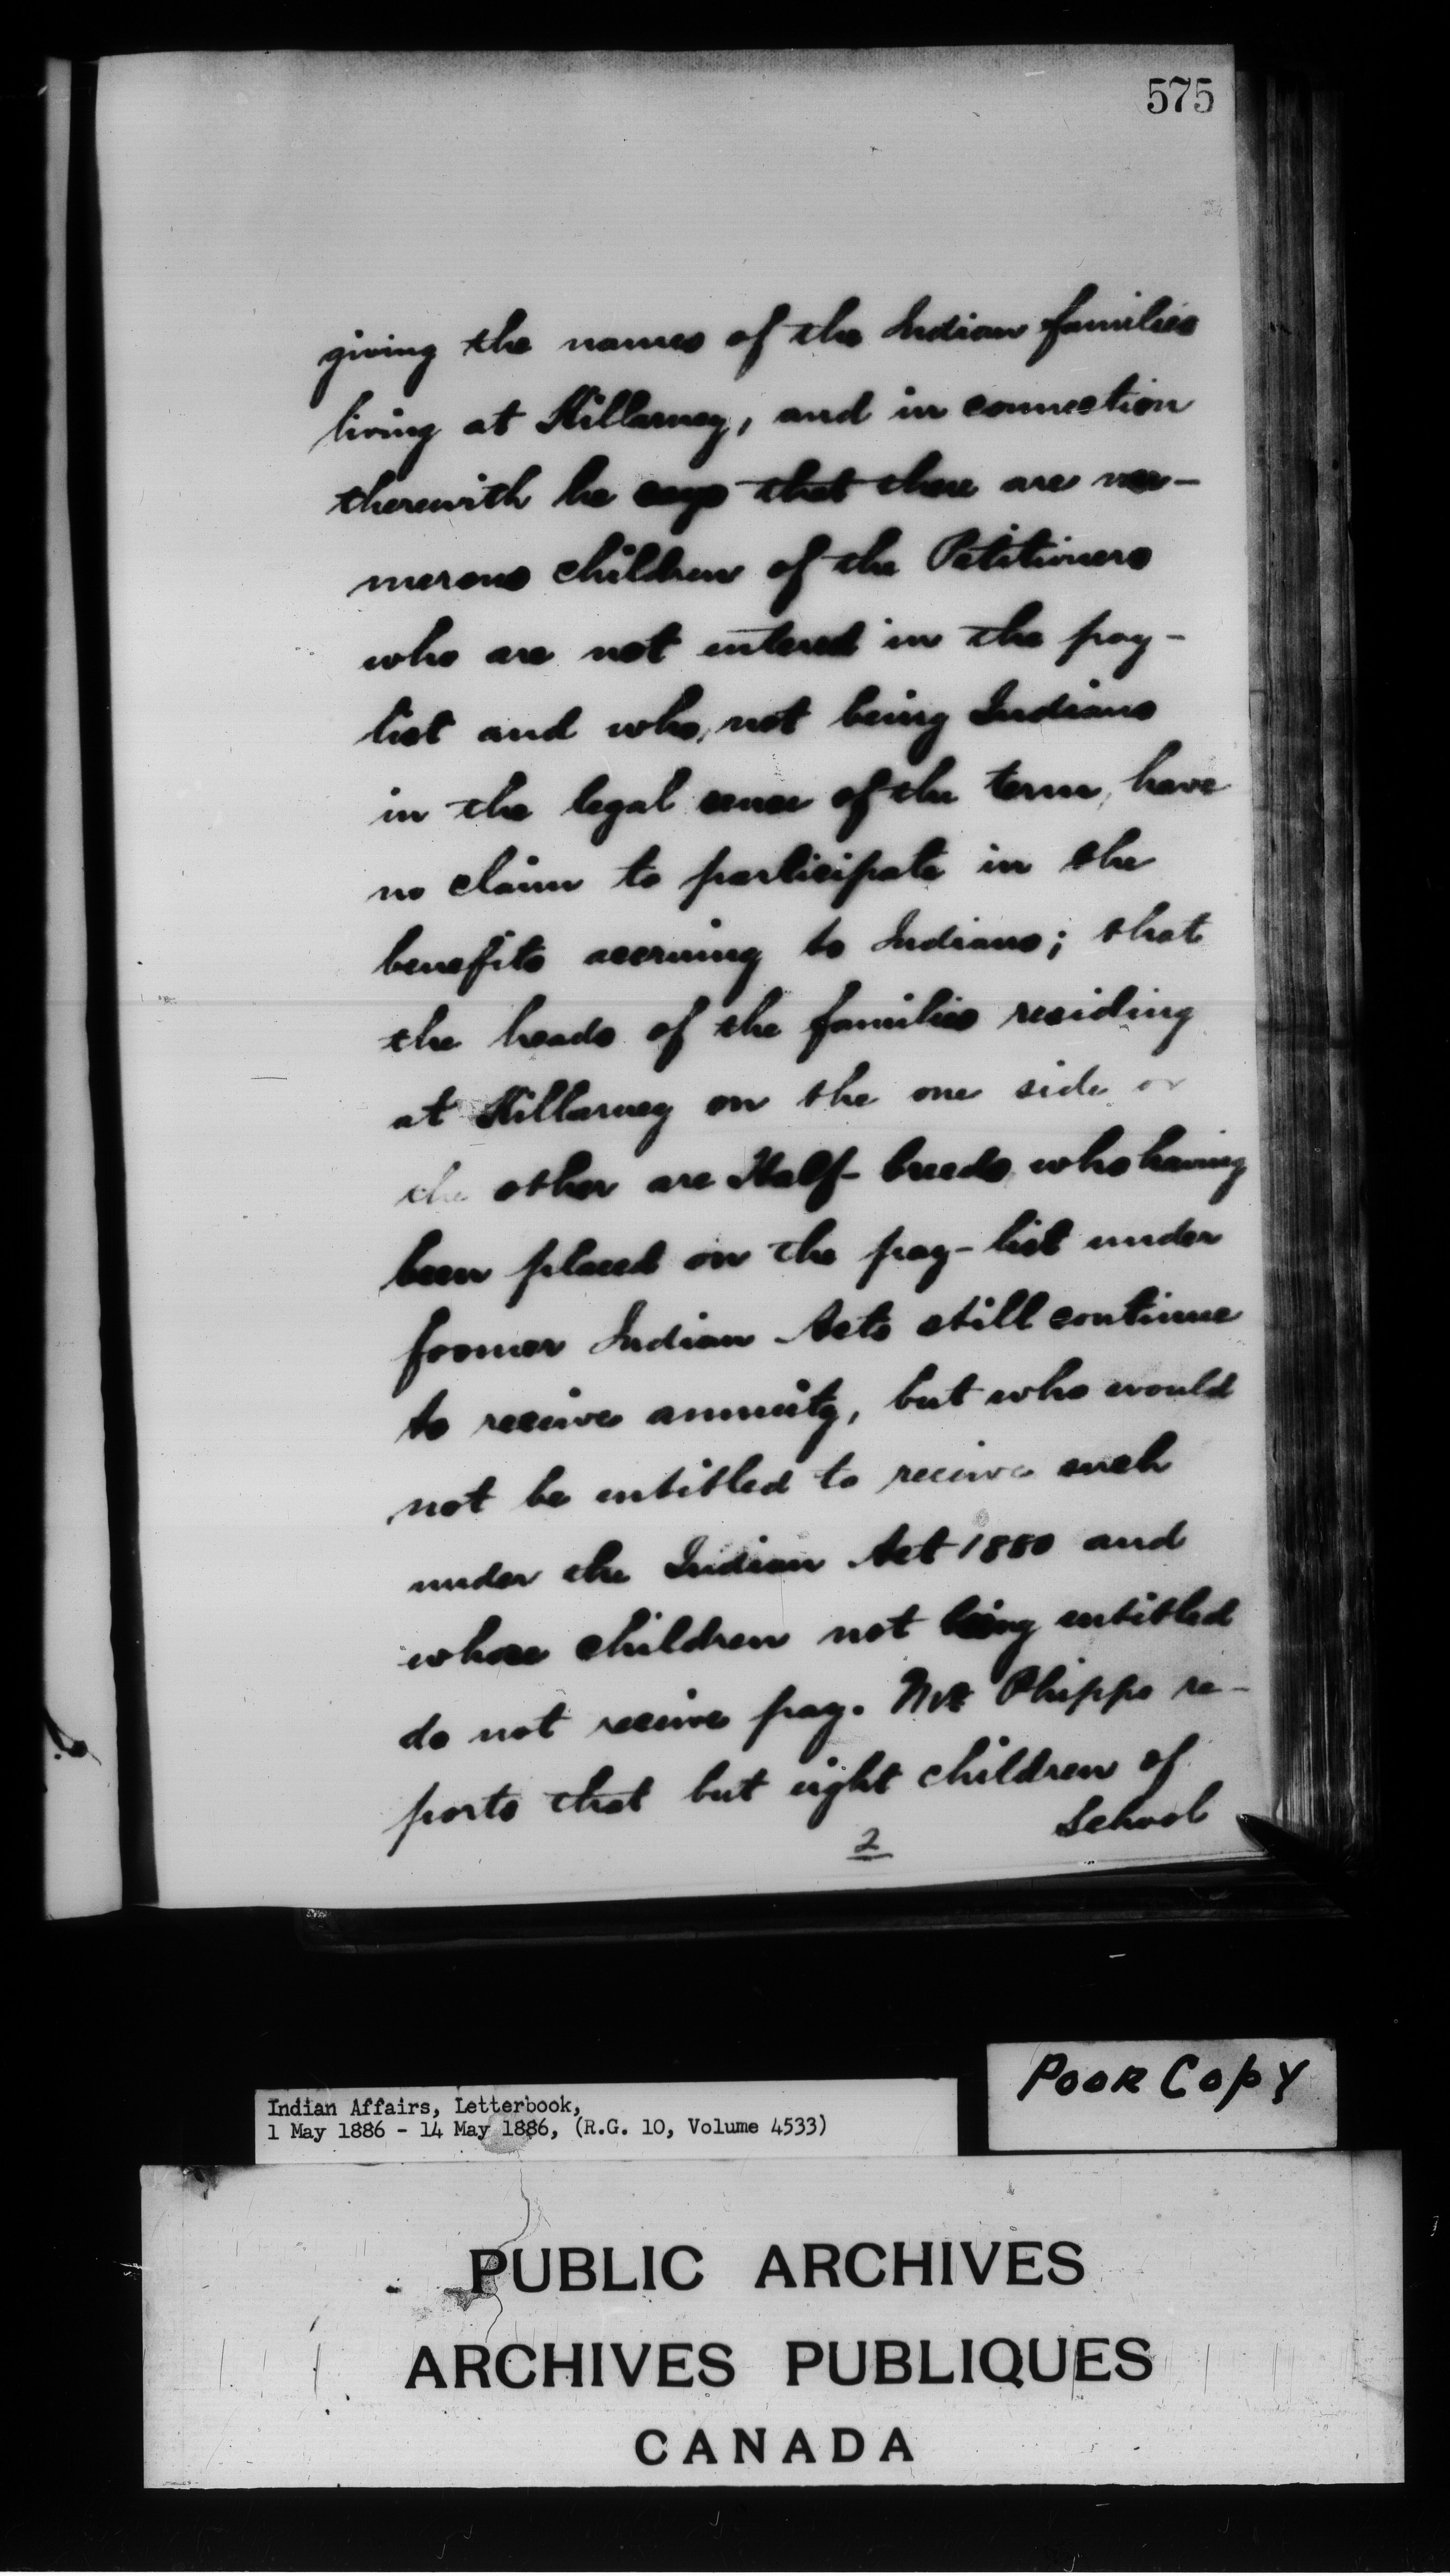 575
giving the names of the Indian families
living at Killarney, and in connection
therewith he says that there are nu-
merous children of the Petitioners
who are not entered in the pay-
list and who, not being Indians
in the legal sense of the term, have
no claim to participate in the
benefits accruing to Indians; that
the heads of the families residing
at Killarney on the one side or
the other are Half-breeds who having
been placed on the pay-list under
former Indian Acts still continue
to receive annuity, but who would
not be entitled to receive such
under the Indian Act 1880 and
whose children not being entitled
do not receive pay. Mr Phipps re-
ports that but eight children of
2 School
POOR COPY
Indian Affairs, Letterbook,
1 May 1886 - 14 May 1886, (R.G. 10, Volume 4533)
PUBLIC ARCHIVES
ARCHIVES PUBLIQUES
CANADA